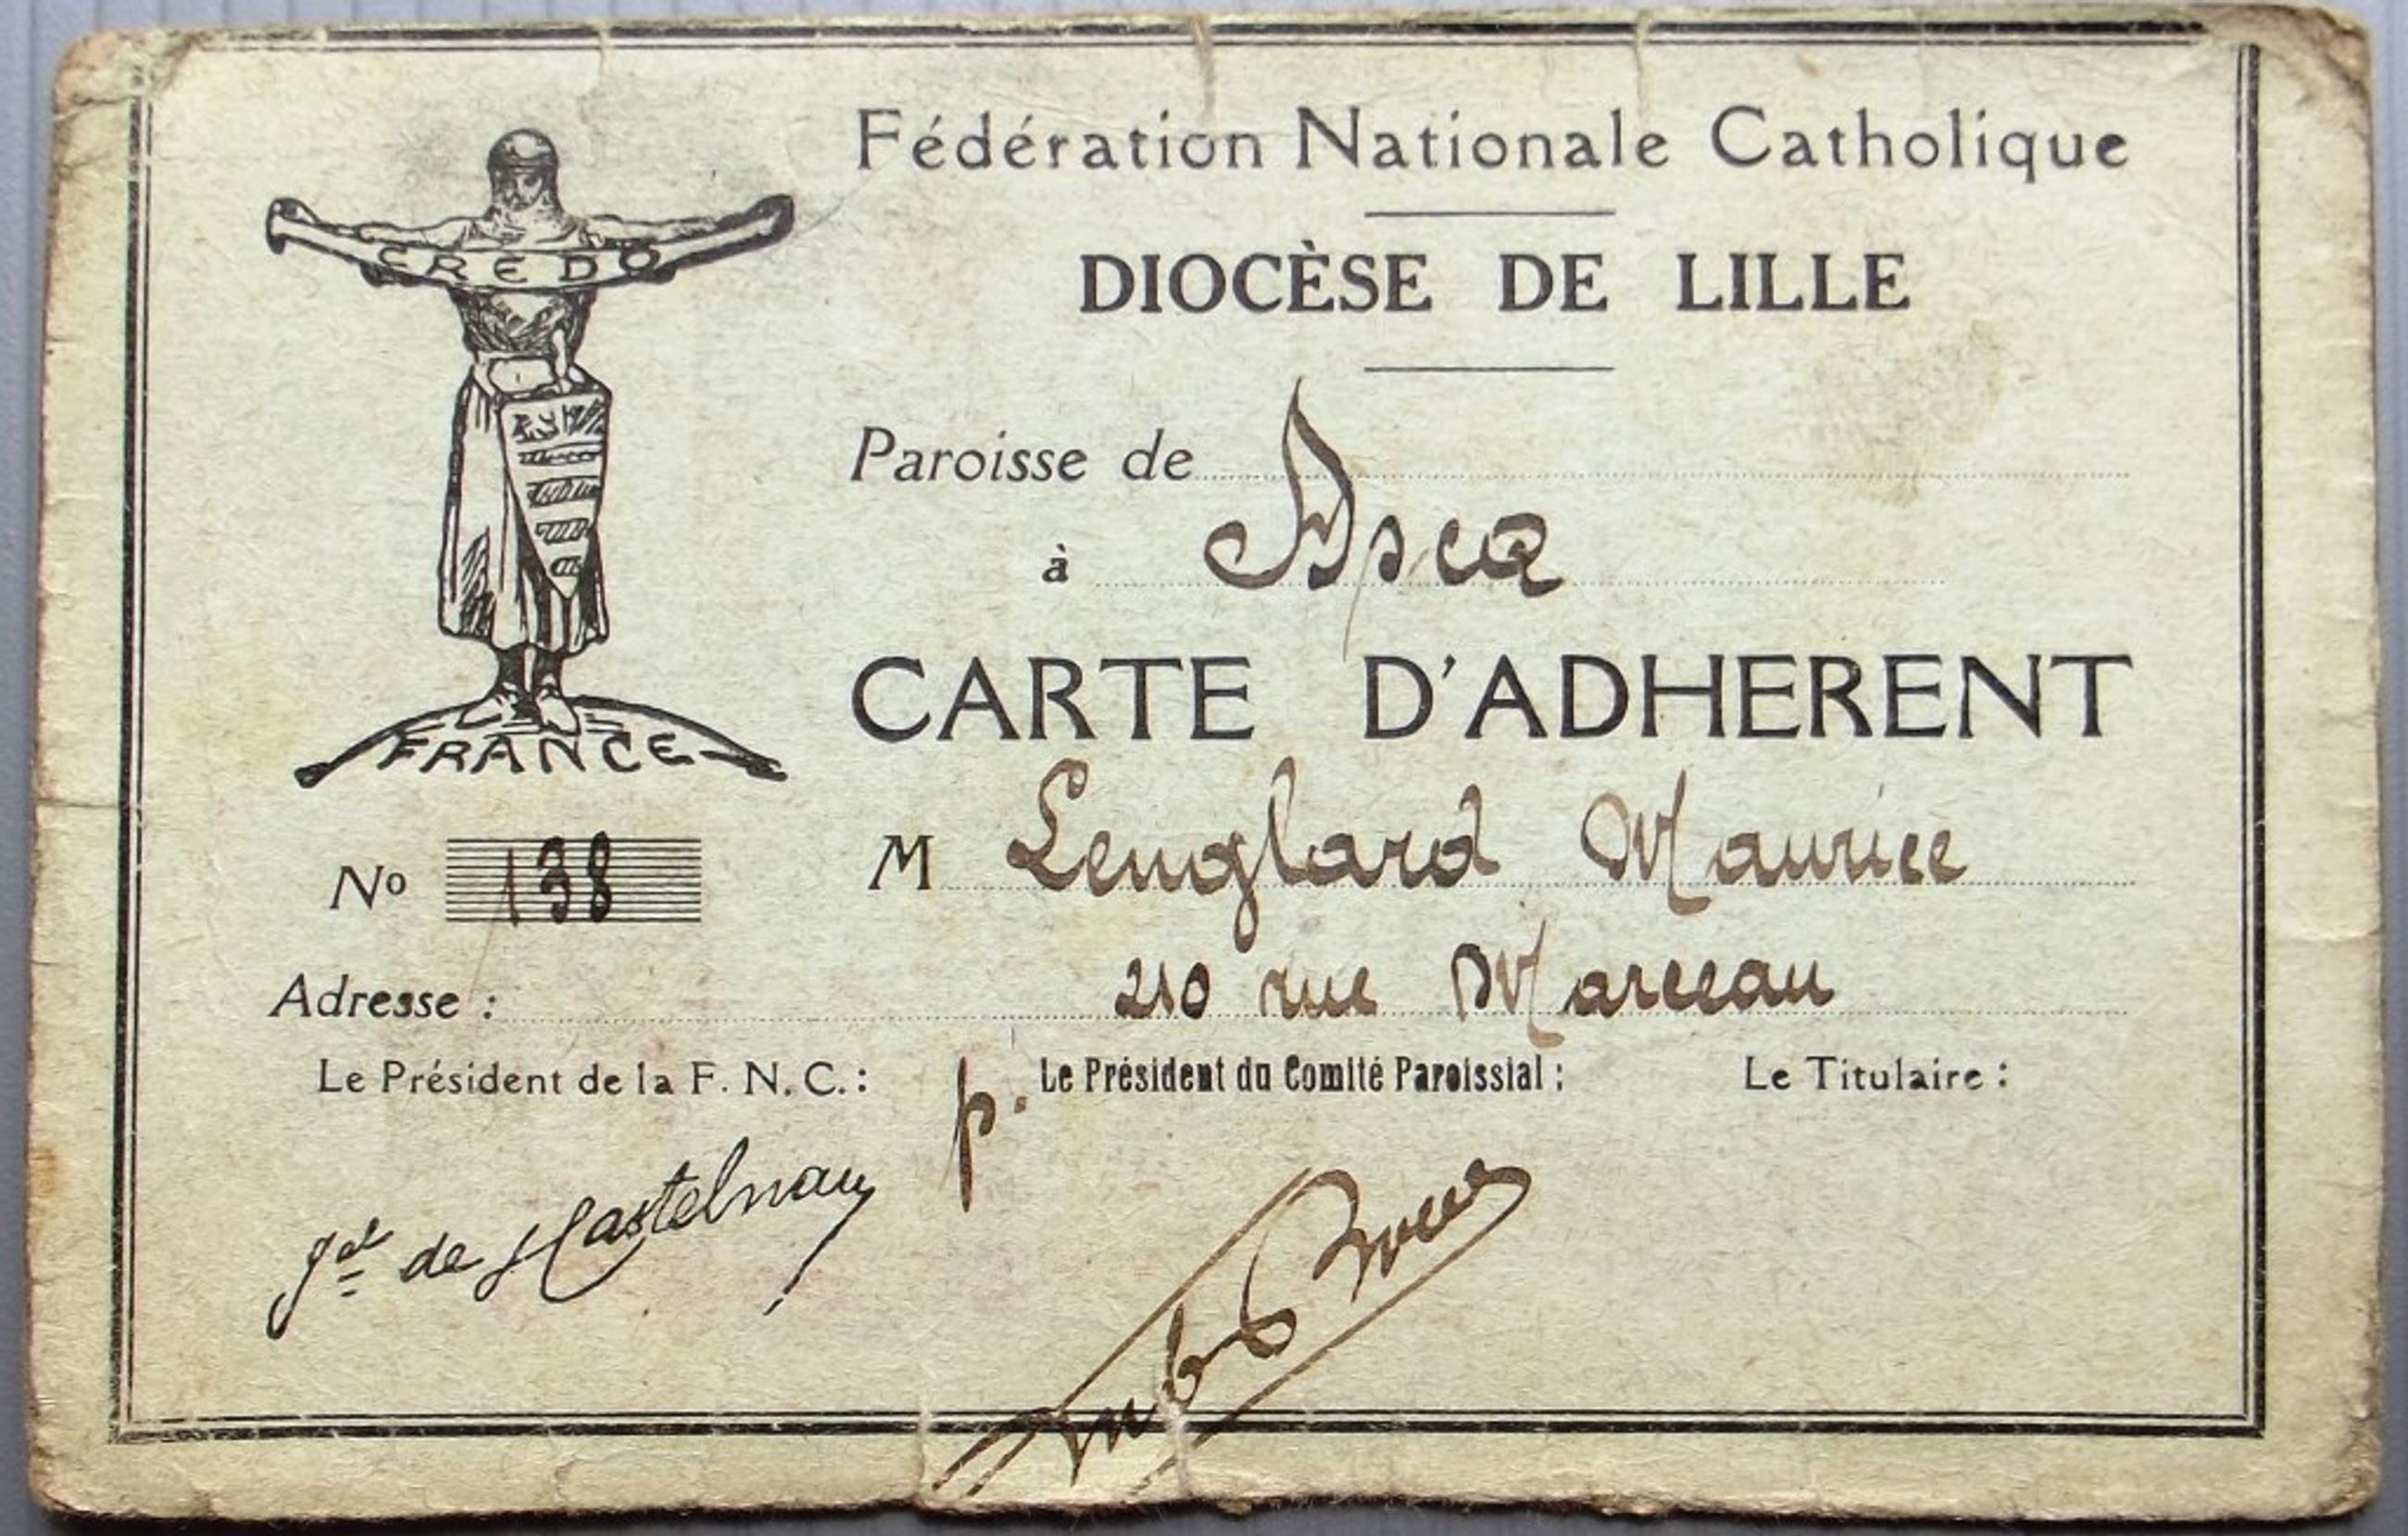 Fédération Nationale Catholique
DIOCÈSE DE LILLE
CREDO
Paroisse de
à Ascq
CARTE D'ADHERENT
FRANCE
No 138
M Lenglard Maurice
Adresse : 210 rue Marceau
Le Président de la F. N. C. :
p. Le Président du Comité Paroissial :
Le Titulaire :
Gal de Castelnau